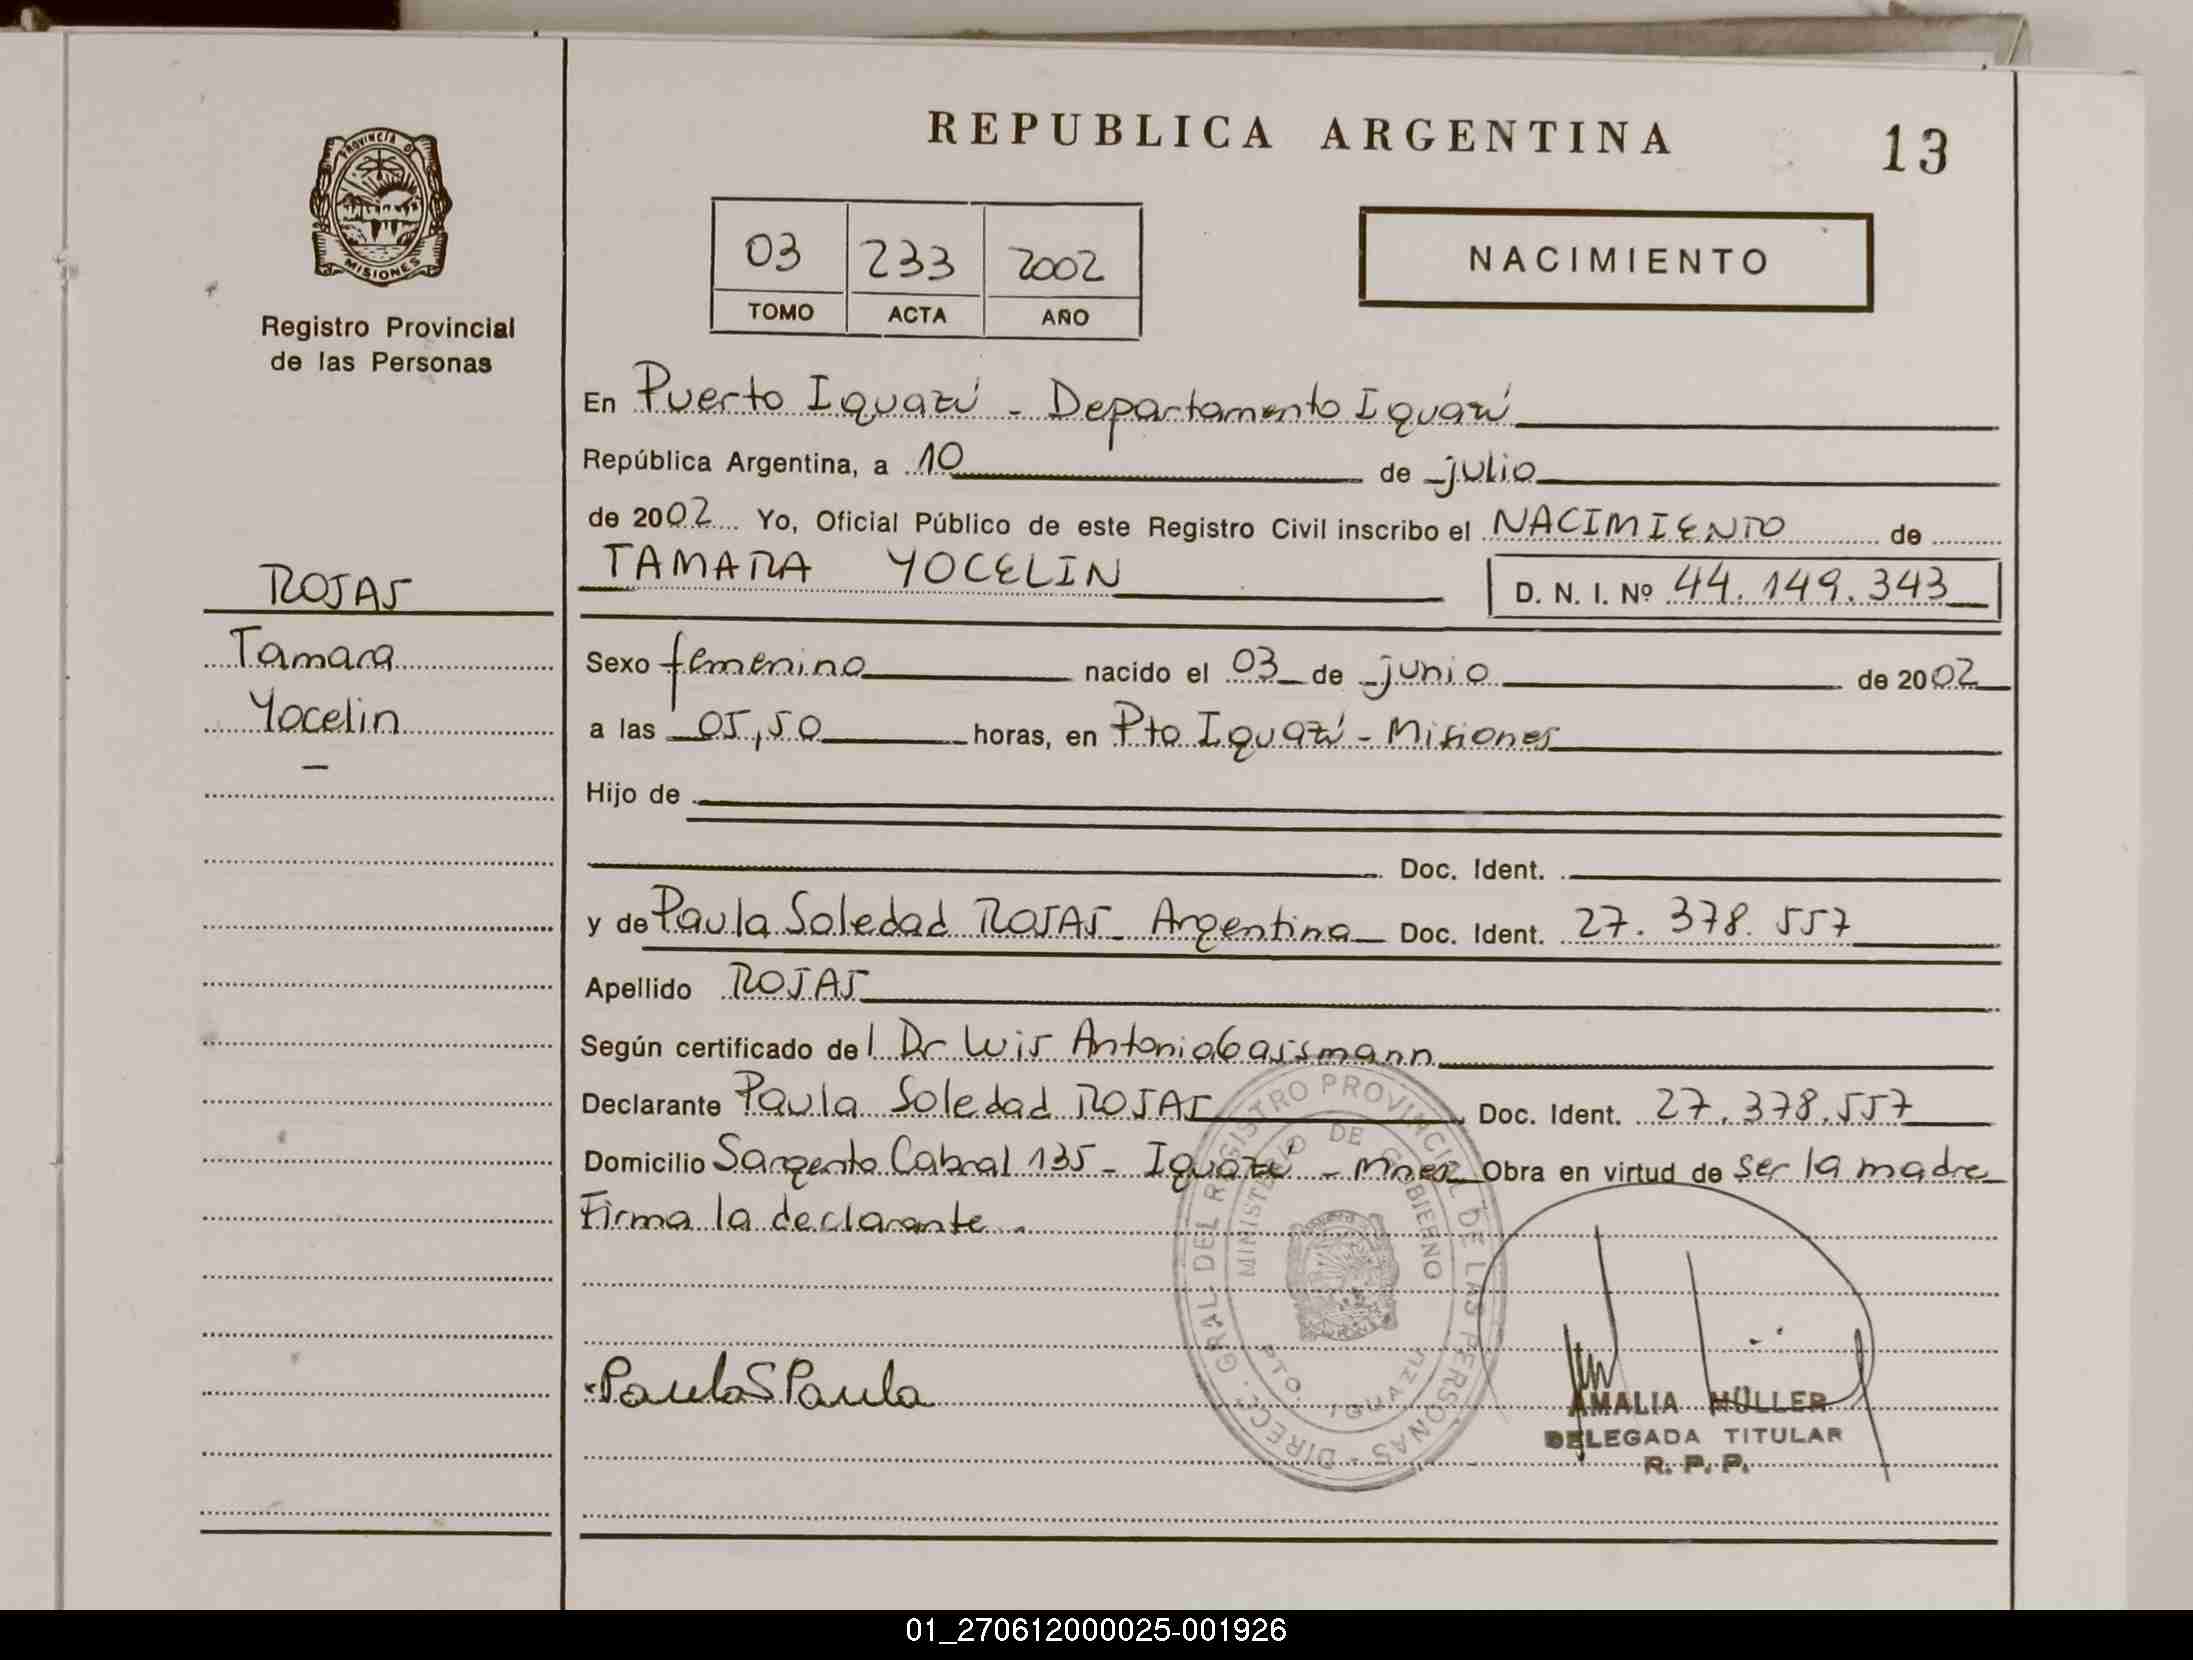 REPUBLICA ARGENTINA
13
PROVINCIA DE
MISIONES
Registro Provincial
de las Personas
03 233 2002
TOMO ACTA AÑO
NACIMIENTO
En Puerto Iguazú - Departamento Iguazú
República Argentina, a 10 de julio
de 2002 Yo, Oficial Público de este Registro Civil inscribo el NACIMIENTO de
TAMARA YOCELIN D. N. I. Nº 44.149.343
ROJAS
Tamara
Yocelin
Sexo femenino nacido el 03 de junio de 2002
a las 05,50 horas, en Pto Iguazú - Misiones
Hijo de
Doc. Ident.
y de Paula Soledad ROJAS - Argentina Doc. Ident. 27.378.557
Apellido ROJAS
Según certificado del Dr Luis Antonio Gassmann
Declarante Paula Soledad ROJAS Doc. Ident. 27.378.557
Domicilio Sargento Cabral 135 - Iguazú - Mnes Obra en virtud de ser la madre
Firma la declarante.
DIRECC. GRAL DEL REGISTRO PROVINCIAL DE LAS PERSONAS
MINISTERIO DE GOBIERNO
PTO. IGUAZU
Paula S Paula
AMALIA MÜLLER
DELEGADA TITULAR
R. P. P.
01_270612000025-001926